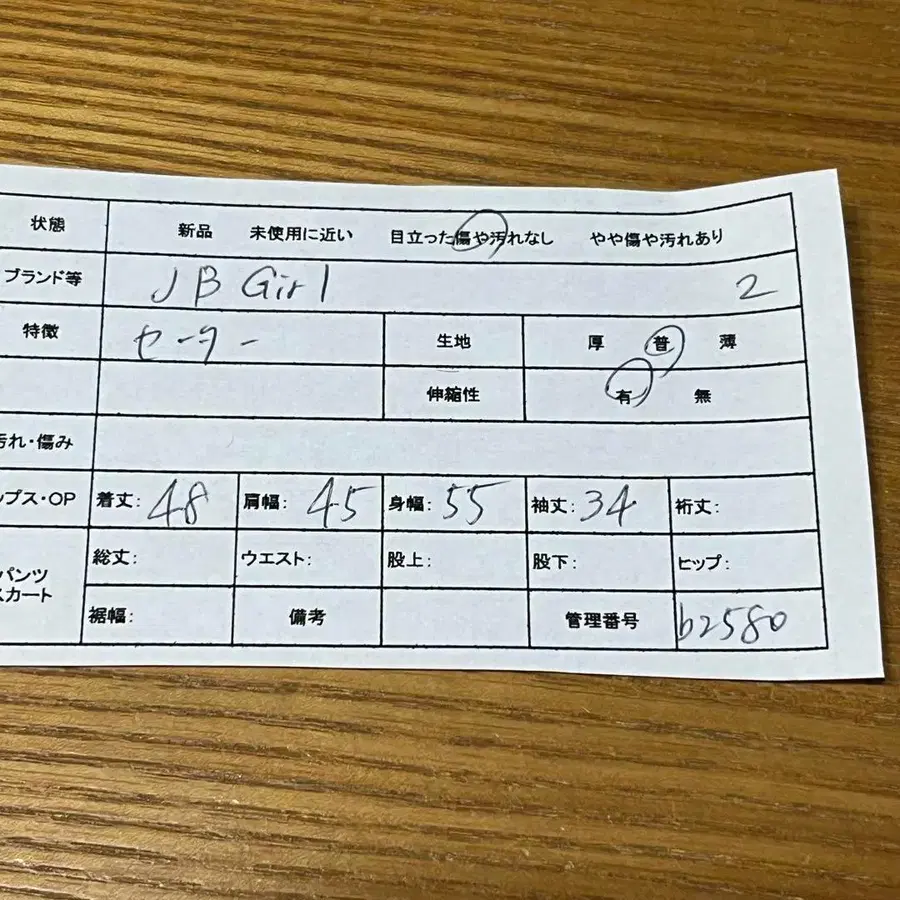 状態 新品 未使用に近い 目立った傷や汚れなし やや傷や汚れあり
ブランド等 JB Girl 2
特徴 セーター 生地 厚 普 薄
伸縮性 有 無
汚れ・傷み
ップス・OP 着丈: 48 肩幅: 45 身幅: 55 袖丈: 34 裄丈:
パンツ 総丈: ウエスト: 股上: 股下: ヒップ:
スカート 裾幅: 備考 管理番号 b2580